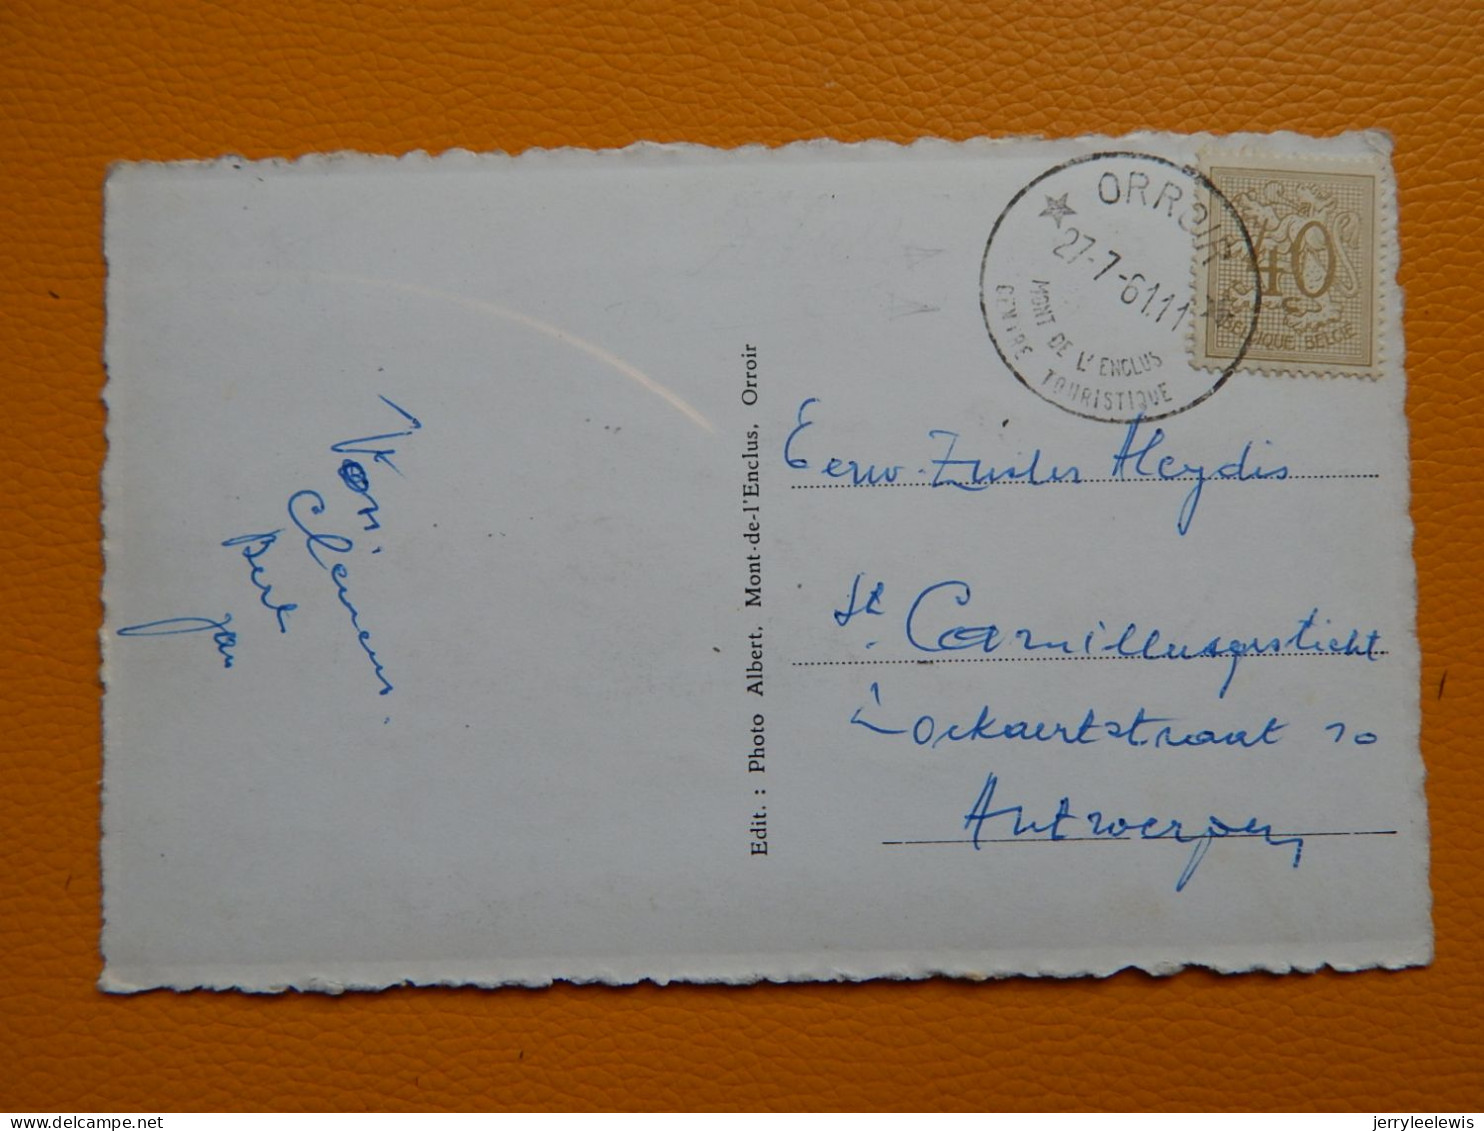 Voni.
Clemens.
Bert
Jan
Edit. : Photo Albert, Mont-de-l'Enclus, Orroir
ORROIR
27-7-61.11
MONT DE L'ENCLUS
CENTRE TOURISTIQUE
40
BELGIQUE BELGIE
Eerw. Zuster Aleydis
St. Camillusgesticht
Lockaertstraat 10
Antwerpen
delcampe.net
jerryleelewis